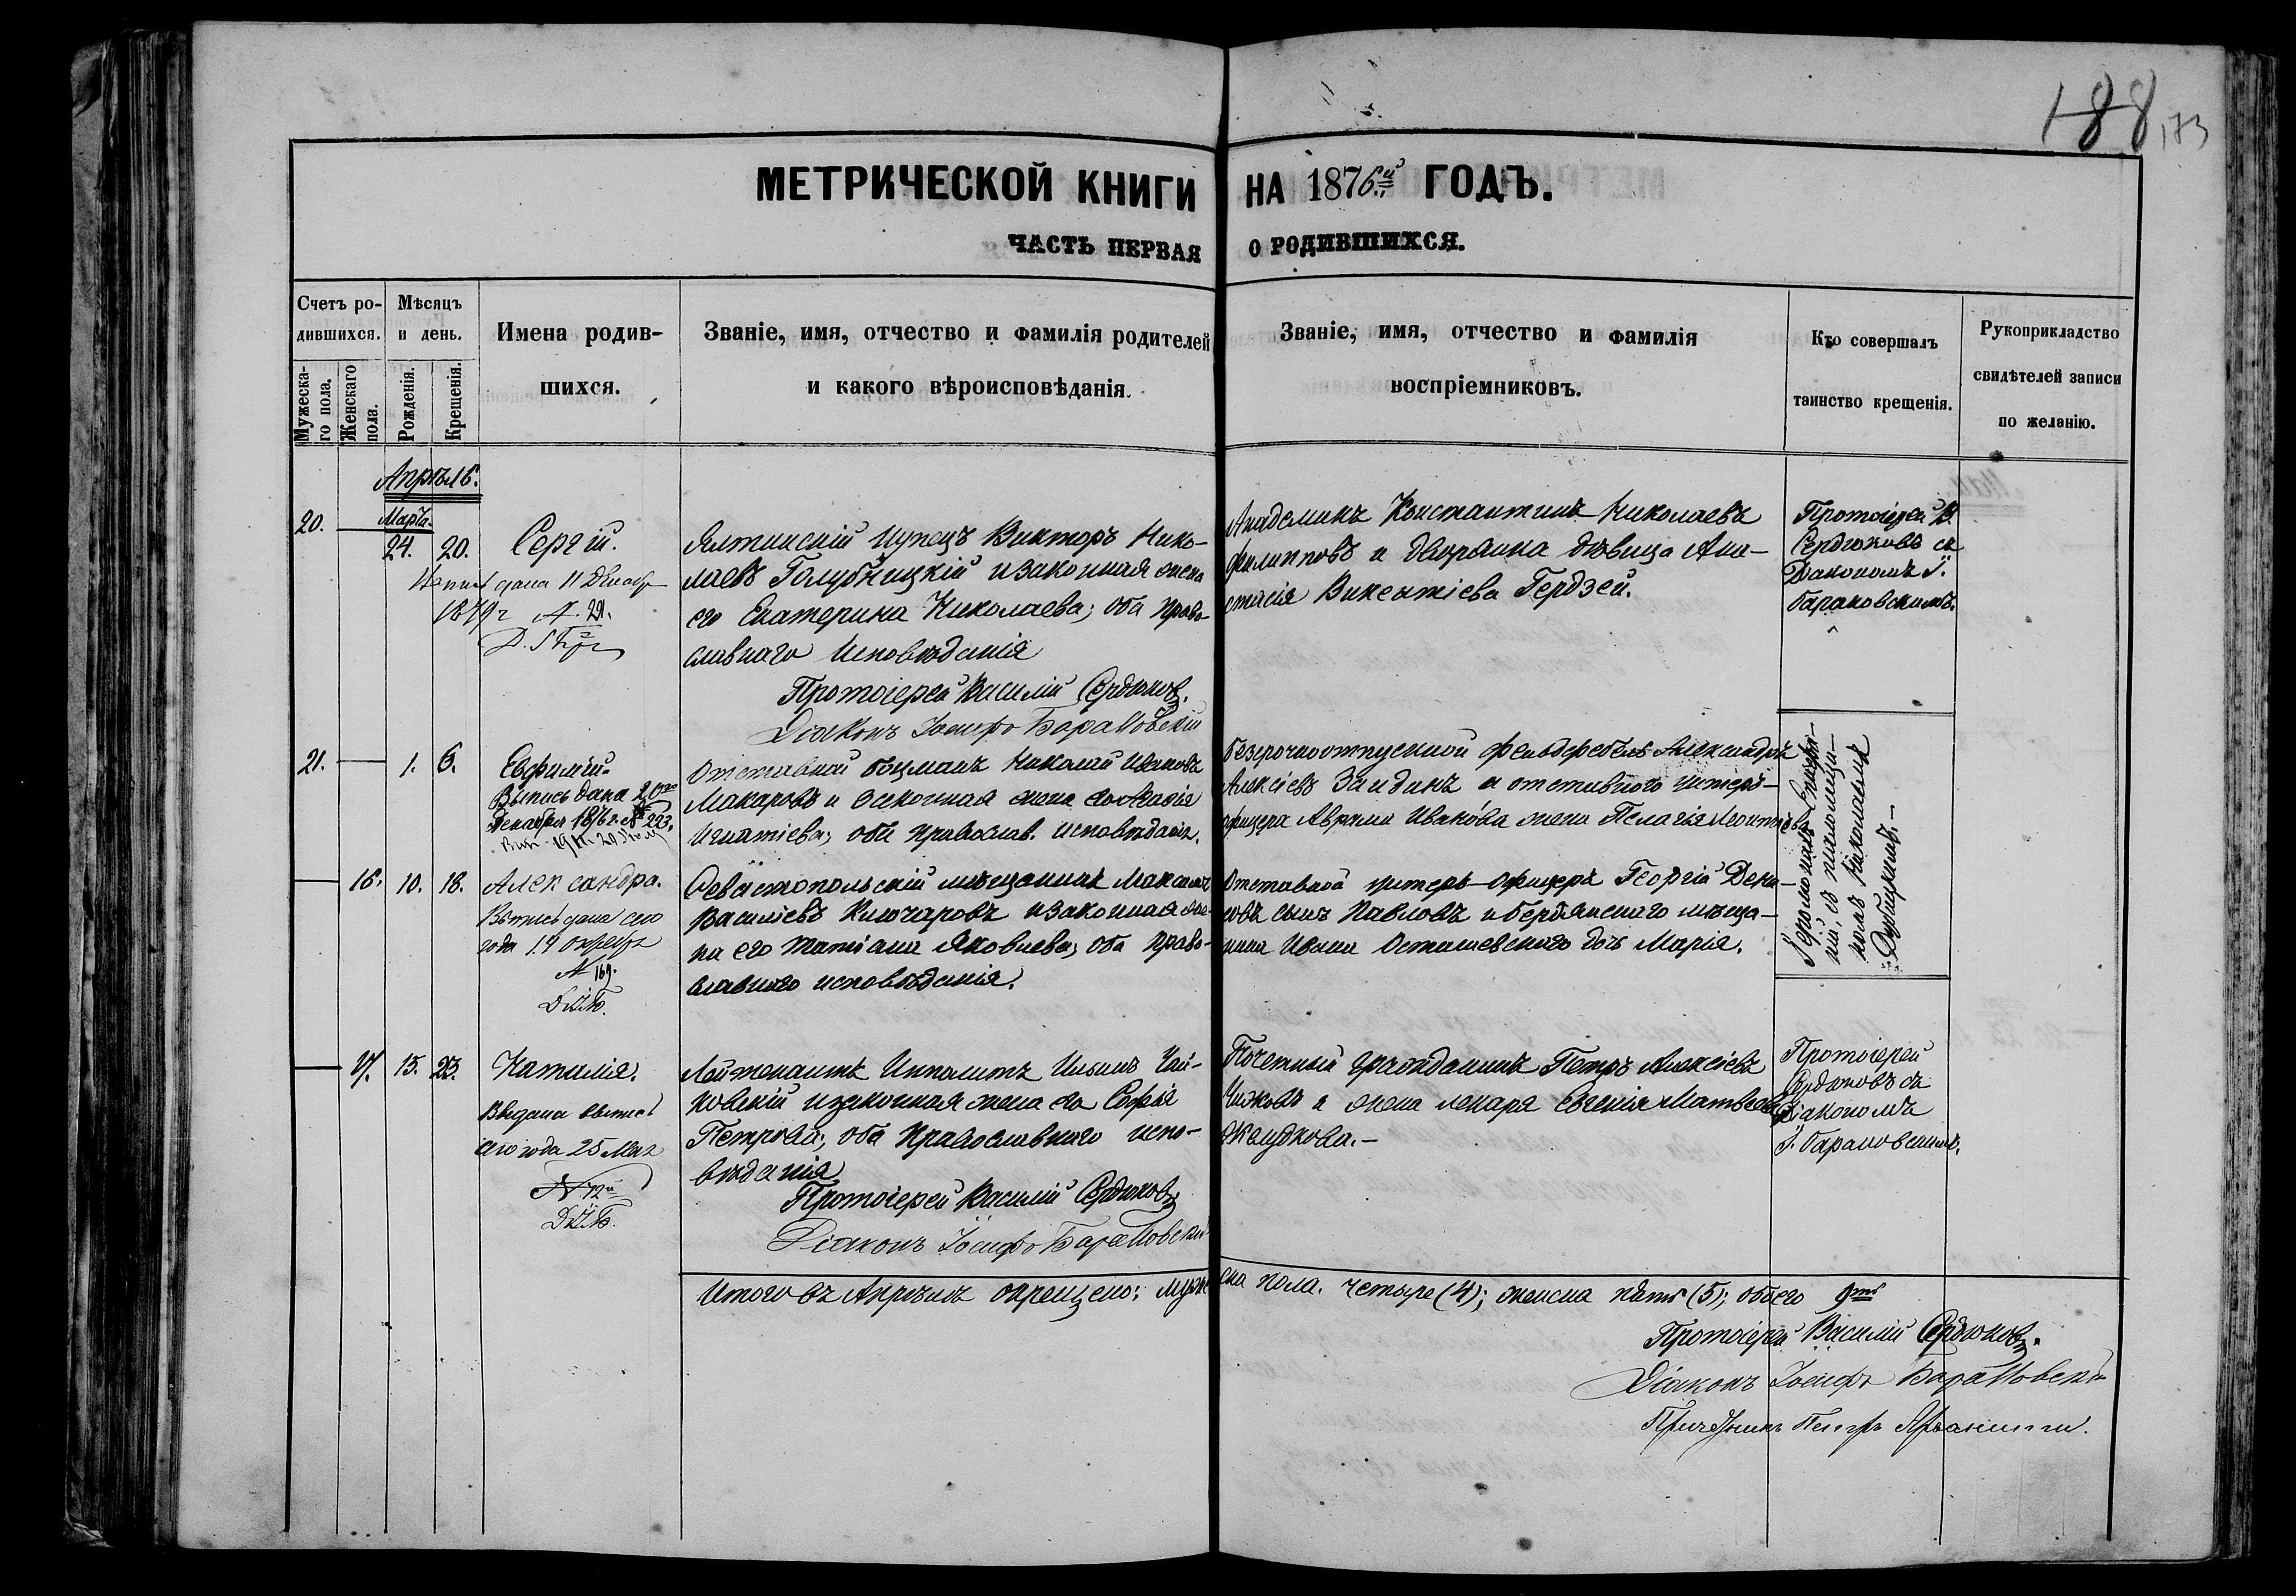 188,173
МЕТРИЧЕСКОЙ КНИГИ НА 1876й ГОДЪ.
ЧАСТЬ ПЕРВАЯ О РОДИВШИХСЯ.
Счетъ ро-
дившихся.
Мужеска-
го пола.
Женскаго
пола.
Мѣсяцъ
и день.
Рожденія.
Крещенія.
Имена родив-
шихся.
Званіе, имя, отчество и фамилія родителей
и какого вѣроисповѣданія.
Званіе, имя, отчество и фамилія
воспріемниковъ.
Кто совершалъ
таинство крещенія.
Рукоприкладство
свидѣтелей записи
по желанію.
Апрѣль.
20.
Марта.
24. 20.
Сергій.
дана 11 Декабр
1879г № 221.
Ялтинскій купецъ Викторъ Нико-
лаевъ Голубницкій и законная жена
его Екатерина Николаева; оба право-
славнаго исповѣданія
Протоіерей Василій Сердюковъ.
Діаконъ Іосифъ Барановскій
Академикъ Константинъ Николаевъ
Филипповъ и дворянка дѣвица Ана-
стасія Викентіева Гердзей.
Протоіерей В.
Сердюковъ съ
Діакономъ І.
Барановскимъ.
21. 1. 6.
Евфимій.
Выпись дана 20го
Декабря 1876 г. № 223.
Отставной боцманъ Николай Ивановъ
Макаровъ и законная жена его Агафія
Игнатіева; оба православ. исповѣданія.
Безсрочноотпускной фельдфебель Александръ
Алексіевъ Зайдинъ и отставного унтеръ-
офицера Аврама Иванова жена Пелагія Леонтіева
Іеромонахъ
Николаемъ
16. 10. 18.
Александра.
Выпись дана сего
года 14 Октября
№ 169.
Д.І.Б.
Севастопольскій мѣщанинъ Максимъ
Василіевъ Ключаровъ и законная же-
на его Татіана Яковлева; оба право-
славнаго исповѣданія.
Отставной унтеръ-офицеръ Георгій Дени-
совъ сынъ Павловъ и бердянскаго мѣща-
нина Ивана Осташевскаго дочь Марія.
17. 15. 23.
Наталія.
Выдана выпись
сего года 25 Мая
№ 72й
Д.І.Б.
Лейтенантъ Ипполитъ Ильинъ Чай-
ковскій и законная жена его Софія
Петрова; оба православнаго испо-
вѣданія
Протоіерей Василій Сердюковъ
Діаконъ Іосифъ Барановскій
Почетный гражданинъ Петръ Алексіевъ
Чижовъ и жена лекаря Евгенія Матвеева
Желудкова.–
Протоіерей
Сердюковъ съ
Діакономъ
І. Барановскимъ.
Итого въ Апрѣлѣ окрещено: мужеска пола. четыре (4); женска пять (5); обоего 9ть
Протоіерей Василій Сердюковъ.
Діаконъ Іосифъ Барановскій
Причетникъ Петръ